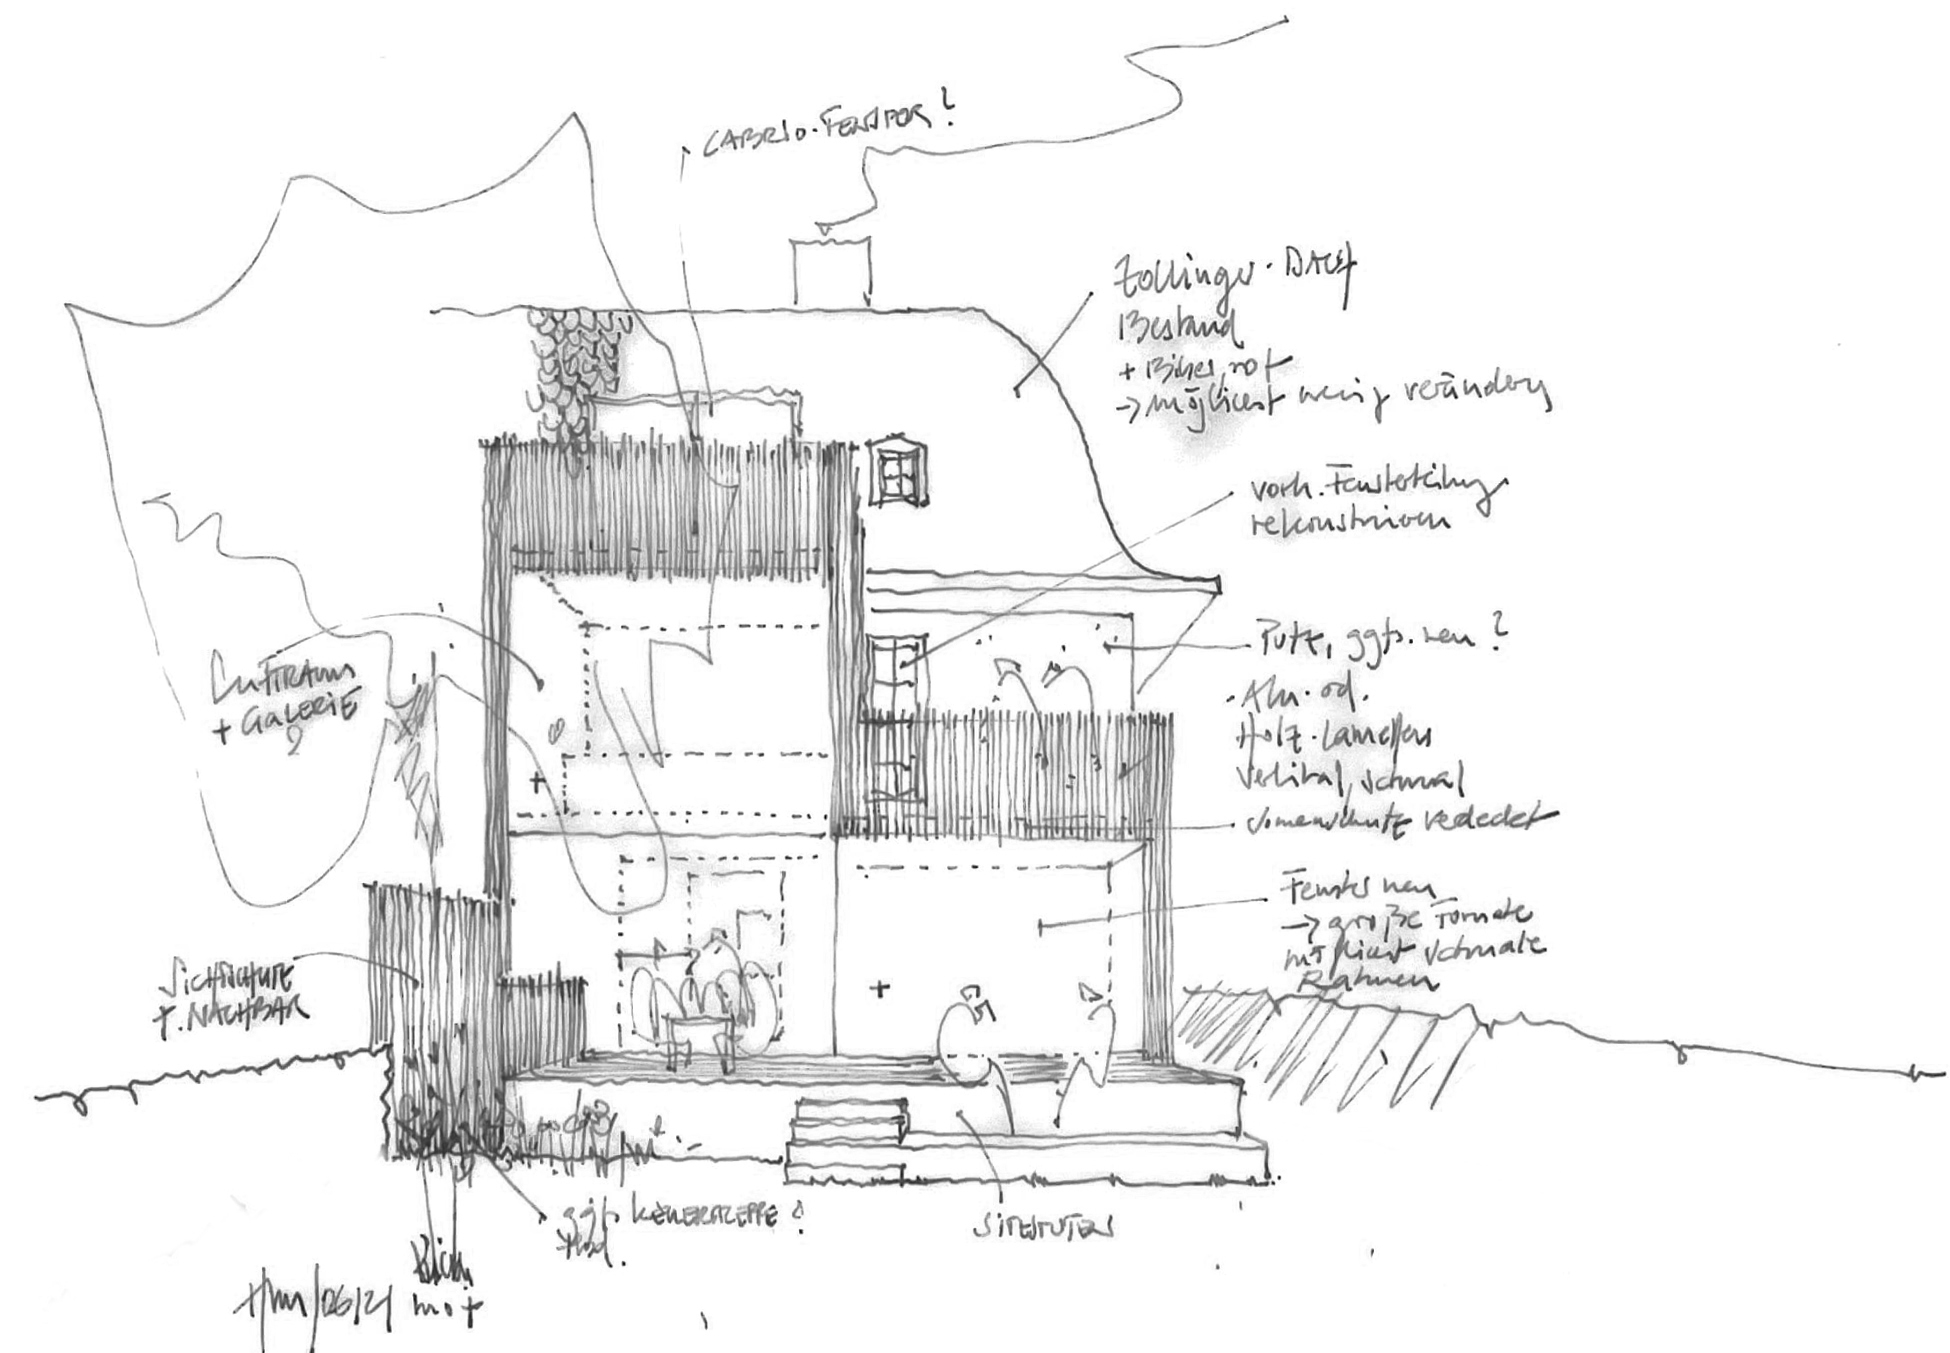 CABRIO-FENSTER?
Zollinger-DACH
Bestand
+ Biber, rot
→ möglichst wenig verändern
vorh. Fensterteilung
rekonstruieren
LUFTRAUM
+ GALERIE
?
Putz, ggfs. neu?
Alu- od.
Holz-Lamellen
vertikal, schmal
Sonnenschutz verdeckt
Fenster neu
→ große Formate
möglichst schmale
Rahmen
SICHTSCHUTZ
z. NACHBAR
ggfs. KELLERTREPPE?
SITZSTUFEN
06/21